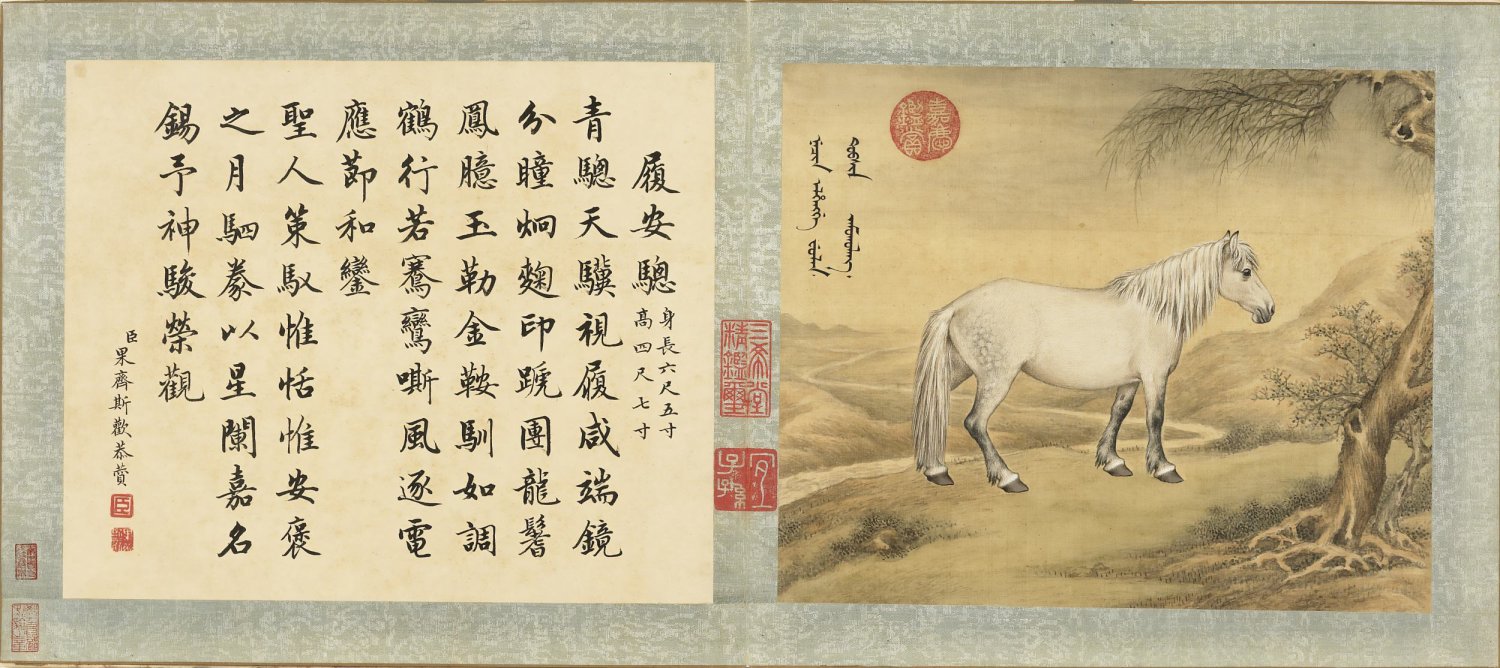 嘉慶
鑑賞
三希堂
精鑑璽
宜
子孫
履安驄
身長六尺五寸
高四尺七寸
青驄天驥視履咸端鏡
分瞳炯麹印蹏團龍鬐
鳳臆玉勒金鞍馴如調
鶴行若騫鸞嘶風逐電
應節和鑾
聖人策馭惟恬惟安褒
之月駟豢以星闌嘉名
錫予神駿榮觀
臣果齊斯歡恭贊
臣